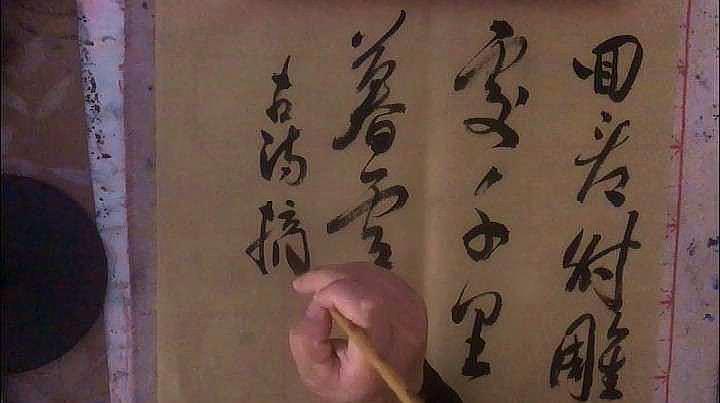 回看射雕
處千里
暮雲
古詩摘